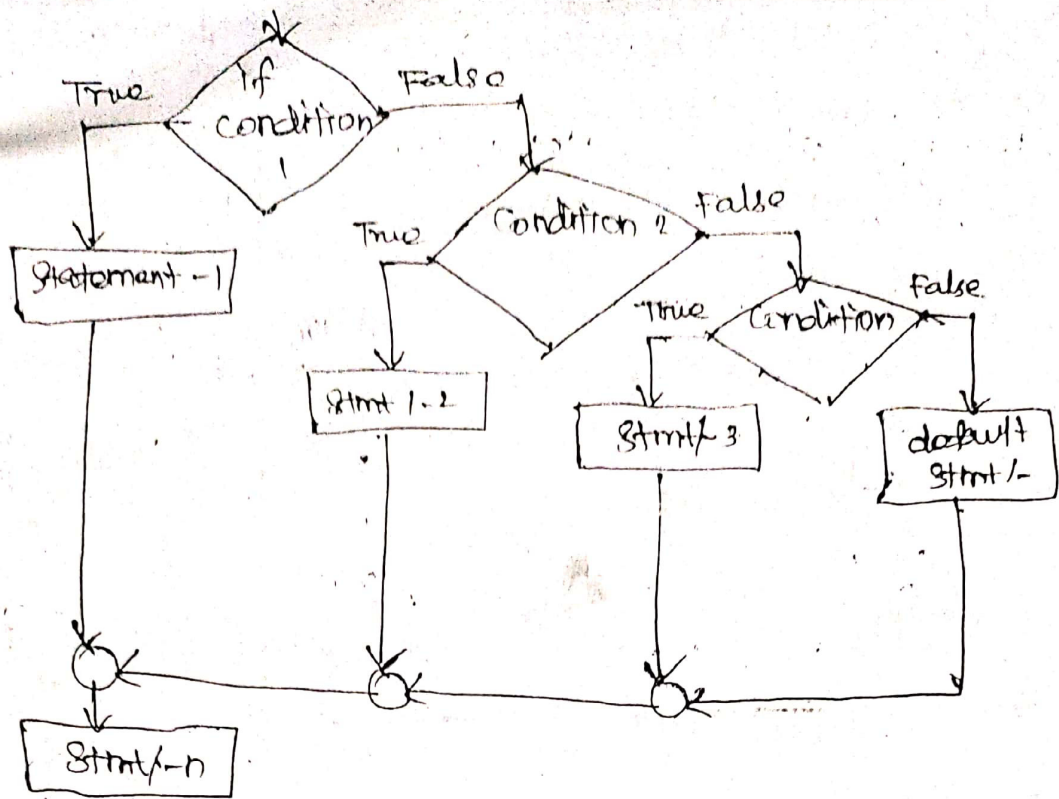 True
if
condition
1
False
Statement-1
True
Condition 2
False
Stmt/-2
True
Condition
False
Stmt/-3
default
Stmt/-
Stmt/-n